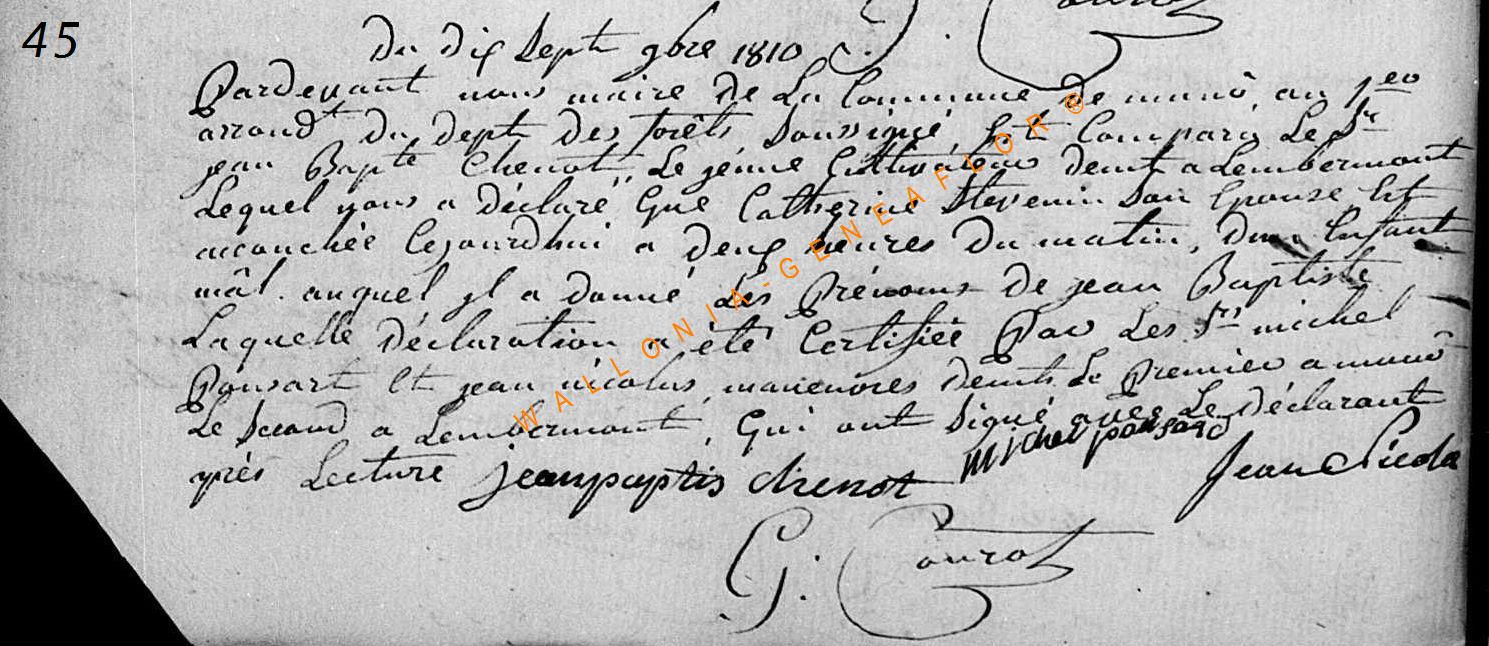 45
Du dix Sept 9bre 1810
Pardevant nous maire de La Commune de muno, au 1er
arrondt du dept des forêts Soussigné Est Comparu Le Sr
jean Bapte Chenot, Le jeune Cultivateur demt a Lembermont
Lequel nous a déclaré que Catherine Stevenin Son Epouse Est
accouchée Cejourdhui a deux heures du matin, dun Enfant
mâl. auquel jl a donné Les Prénoms de jean Baptiste
Laquelle déclaration a été Certifiée Par Les Srs michel
Ponsart Et jean nicolas, manoeuvres demts Le Premier a muno
Le Second a Lembermont, Qui ont Signé avec Le déclarant
après Lecture jeanpaptis chenot michel ponsard Jean Nicola
G. Courot
WALLONIA-GENEAFLOR©